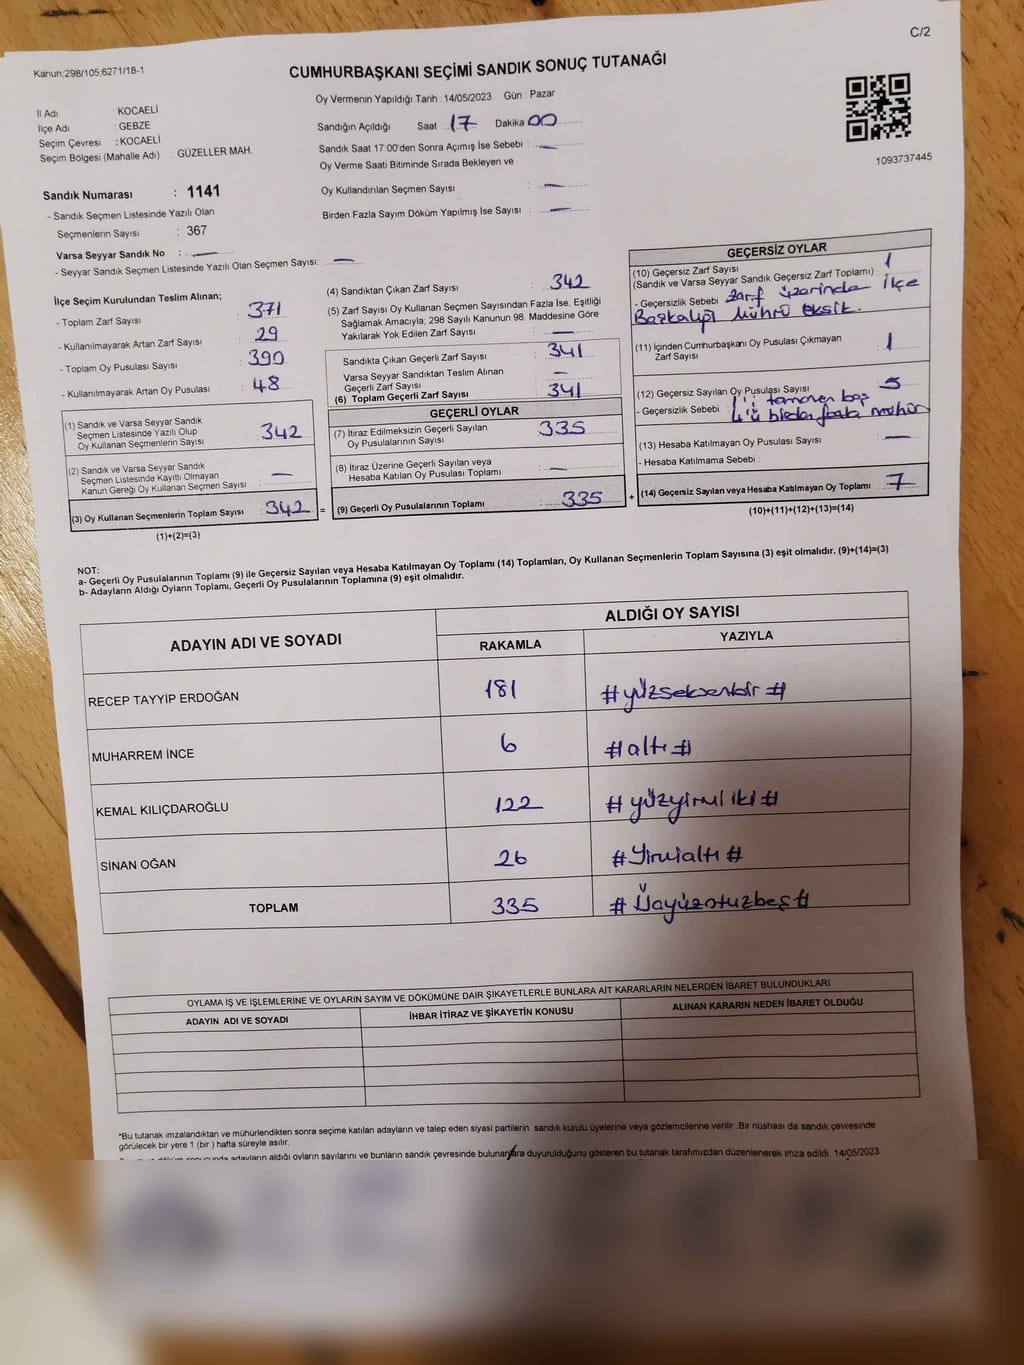 C/2
Kanun:298/105;6271/18-1
CUMHURBAŞKANI SEÇİMİ SANDIK SONUÇ TUTANAĞI
Oy Vermenin Yapıldığı Tarih : 14/05/2023 Gün : Pazar
İl Adı : KOCAELİ
İlçe Adı : GEBZE
Seçim Çevresi : KOCAELİ
Seçim Bölgesi (Mahalle Adı) : GÜZELLER MAH.
Sandığın Açıldığı Saat 17 Dakika 00
Sandık Saat 17:00'den Sonra Açımış İse Sebebi : —
Oy Verme Saati Bitiminde Sırada Bekleyen ve
Oy Kullandırılan Seçmen Sayısı : —
Birden Fazla Sayım Döküm Yapılmış İse Sayısı : —
1093737445
Sandık Numarası : 1141
- Sandık Seçmen Listesinde Yazılı Olan
Seçmenlerin Sayısı : 367
Varsa Seyyar Sandık No : —
- Seyyar Sandık Seçmen Listesinde Yazılı Olan Seçmen Sayısı: —
İlçe Seçim Kurulundan Teslim Alınan;
- Toplam Zarf Sayısı : 371
- Kullanılmayarak Artan Zarf Sayısı : 29
- Toplam Oy Pusulası Sayısı : 390
- Kullanılmayarak Artan Oy Pusulası : 48
(1) Sandık ve Varsa Seyyar Sandık
Seçmen Listesinde Yazılı Olup
Oy Kullanan Seçmenlerin Sayısı : 342
(2) Sandık ve Varsa Seyyar Sandık
Seçmen Listesinde Kayıtlı Olmayan
Kanun Gereği Oy Kullanan Seçmen Sayısı : —
(3) Oy Kullanan Seçmenlerin Toplam Sayısı : 342 =
(1)+(2)=(3)
(4) Sandıktan Çıkan Zarf Sayısı : 342
(5) Zarf Sayısı Oy Kullanan Seçmen Sayısından Fazla İse, Eşitliği
Sağlamak Amacıyla; 298 Sayılı Kanunun 98. Maddesine Göre
Yakılarak Yok Edilen Zarf Sayısı : —
Sandıkta Çıkan Geçerli Zarf Sayısı : 341
Varsa Seyyar Sandıktan Teslim Alınan
Geçerli Zarf Sayısı : —
(6) Toplam Geçerli Zarf Sayısı : 341
GEÇERLİ OYLAR
(7) İtiraz Edilmeksizin Geçerli Sayılan
Oy Pusulalarının Sayısı : 335
(8) İtiraz Üzerine Geçerli Sayılan veya
Hesaba Katılan Oy Pusulası Toplamı : —
(9) Geçerli Oy Pusulalarının Toplamı : 335 +
GEÇERSİZ OYLAR
(10) Geçersiz Zarf Sayısı
(Sandık ve Varsa Seyyar Sandık Geçersiz Zarf Toplamı) : 1
- Geçersizlik Sebebi : Zarf üzerinde İlçe
Başkanlığı mührü eksik.
(11) İçinden Cumhurbaşkanı Oy Pusulası Çıkmayan
Zarf Sayısı : 1
(12) Geçersiz Sayılan Oy Pusulası Sayısı : 5
- Geçersizlik Sebebi : 1'i tamamen boş
4'ü birden fazla mühür
(13) Hesaba Katılmayan Oy Pusulası Sayısı : —
- Hesaba Katılmama Sebebi :
(14) Geçersiz Sayılan veya Hesaba Katılmayan Oy Toplamı : 7
(10)+(11)+(12)+(13)=(14)
NOT:
a- Geçerli Oy Pusulalarının Toplamı (9) ile Geçersiz Sayılan veya Hesaba Katılmayan Oy Toplamı (14) Toplamları, Oy Kullanan Seçmenlerin Toplam Sayısına (3) eşit olmalıdır. (9)+(14)=(3)
b- Adayların Aldığı Oyların Toplamı, Geçerli Oy Pusulalarının Toplamına (9) eşit olmalıdır.
ADAYIN ADI VE SOYADI
ALDIĞI OY SAYISI
RAKAMLA YAZIYLA
RECEP TAYYİP ERDOĞAN 181 #yüzseksenbir#
MUHARREM İNCE 6 #altı#
KEMAL KILIÇDAROĞLU 122 #yüzyirmi iki#
SİNAN OĞAN 26 #Yirmialtı#
TOPLAM 335 #Üçyüzotuzbeş#
OYLAMA İŞ VE İŞLEMLERİNE VE OYLARIN SAYIM VE DÖKÜMÜNE DAİR ŞİKAYETLERLE BUNLARA AİT KARARLARIN NELERDEN İBARET BULUNDUKLARI
ADAYIN ADI VE SOYADI İHBAR İTİRAZ VE ŞİKAYETİN KONUSU ALINAN KARARIN NEDEN İBARET OLDUĞU
*Bu tutanak imzalandıktan ve mühürlendikten sonra seçime katılan adayların ve talep eden siyasi partilerin sandık kurulu üyelerine veya gözlemcilerine verilir. Bir nüshası da sandık çevresinde
görülecek bir yere 1 (bir) hafta süreyle asılır.
sonucunda adayların aldığı oyların sayılarını ve bunların sandık çevresinde bulunanlara duyurulduğunu gösteren bu tutanak tarafımızdan düzenlenerek imza edildi. 14/05/2023